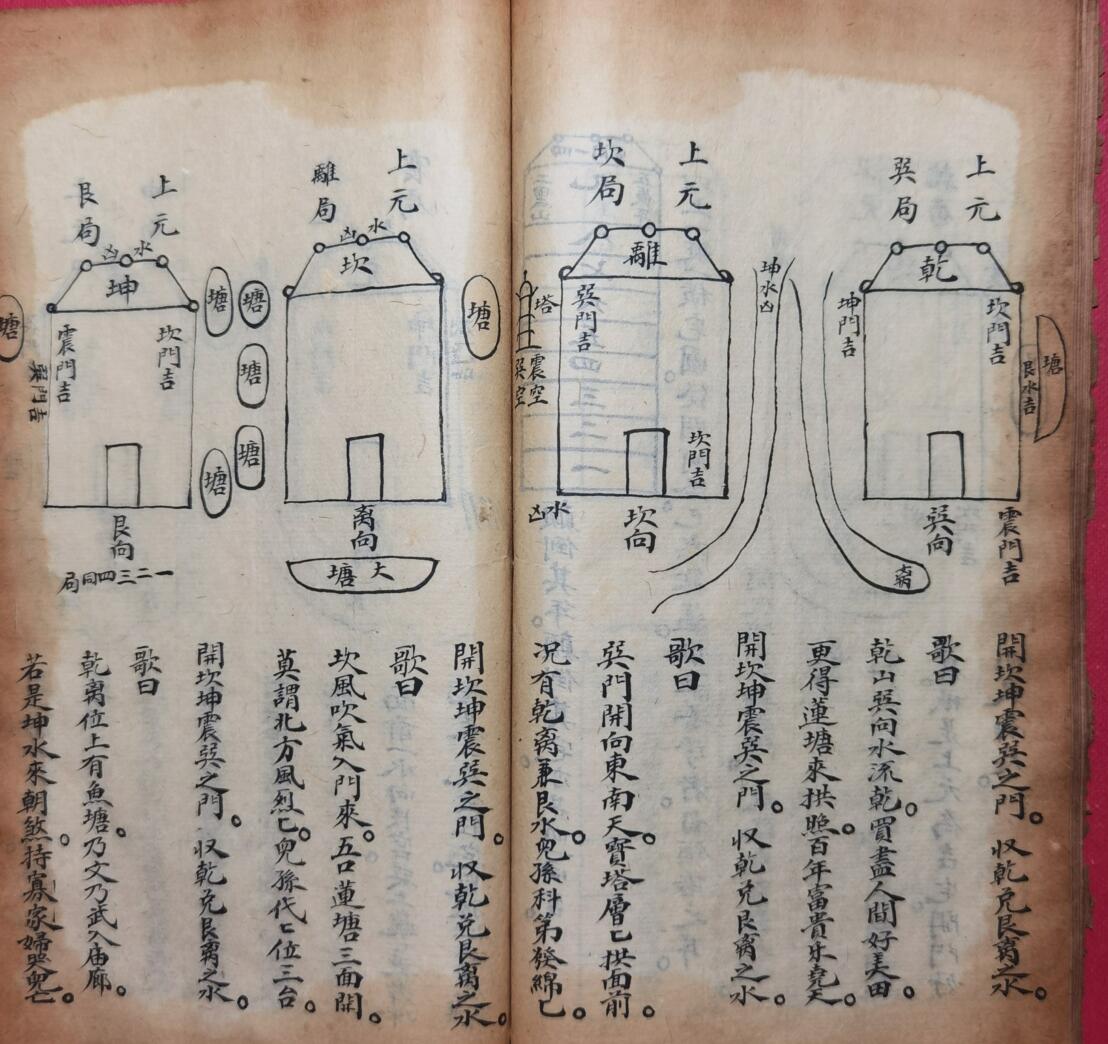 上元
巽局
乾
坎門吉
坤門吉
塘
艮水吉
巽向
震門吉
開坎坤震巽之門。收乾兌艮离之水。
歌曰
乾山巽向水流乾。買盡人間好美田。
更得蓮塘來拱照。百年富貴乐堯天。
上元
坎局
離
巽門吉
坎門吉
坤水凶
塔
震空
巽空
坎向
水凶
開坎坤震巽之門。收乾兌艮离之水。
歌曰
巽門開向東南天。寶塔層匕拱面前。
况有乾离兼艮水。兒孫科第發綿匕。
上元
離局
水凶
坎
塘
塘
塘
塘
离向
大塘
開坎坤震巽之門。收乾兌艮离之水。
歌曰
坎風吹氣入門來。五口蓮塘三面開。
莫謂北方風烈匕。兒孫代匕位三台。
上元
艮局
水凶
坤
坎門吉
震門吉
巽門吉
塘
塘
塘
艮向
一二三四同局
開坎坤震巽之門。收乾兌艮离之水。
歌曰
乾离位上有魚塘。乃文乃武入庙廊。
若是坤水來朝煞。持寡家婦哭兒亡。